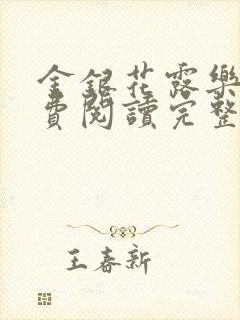 金銀花露樂
費閱讀完整
王春新